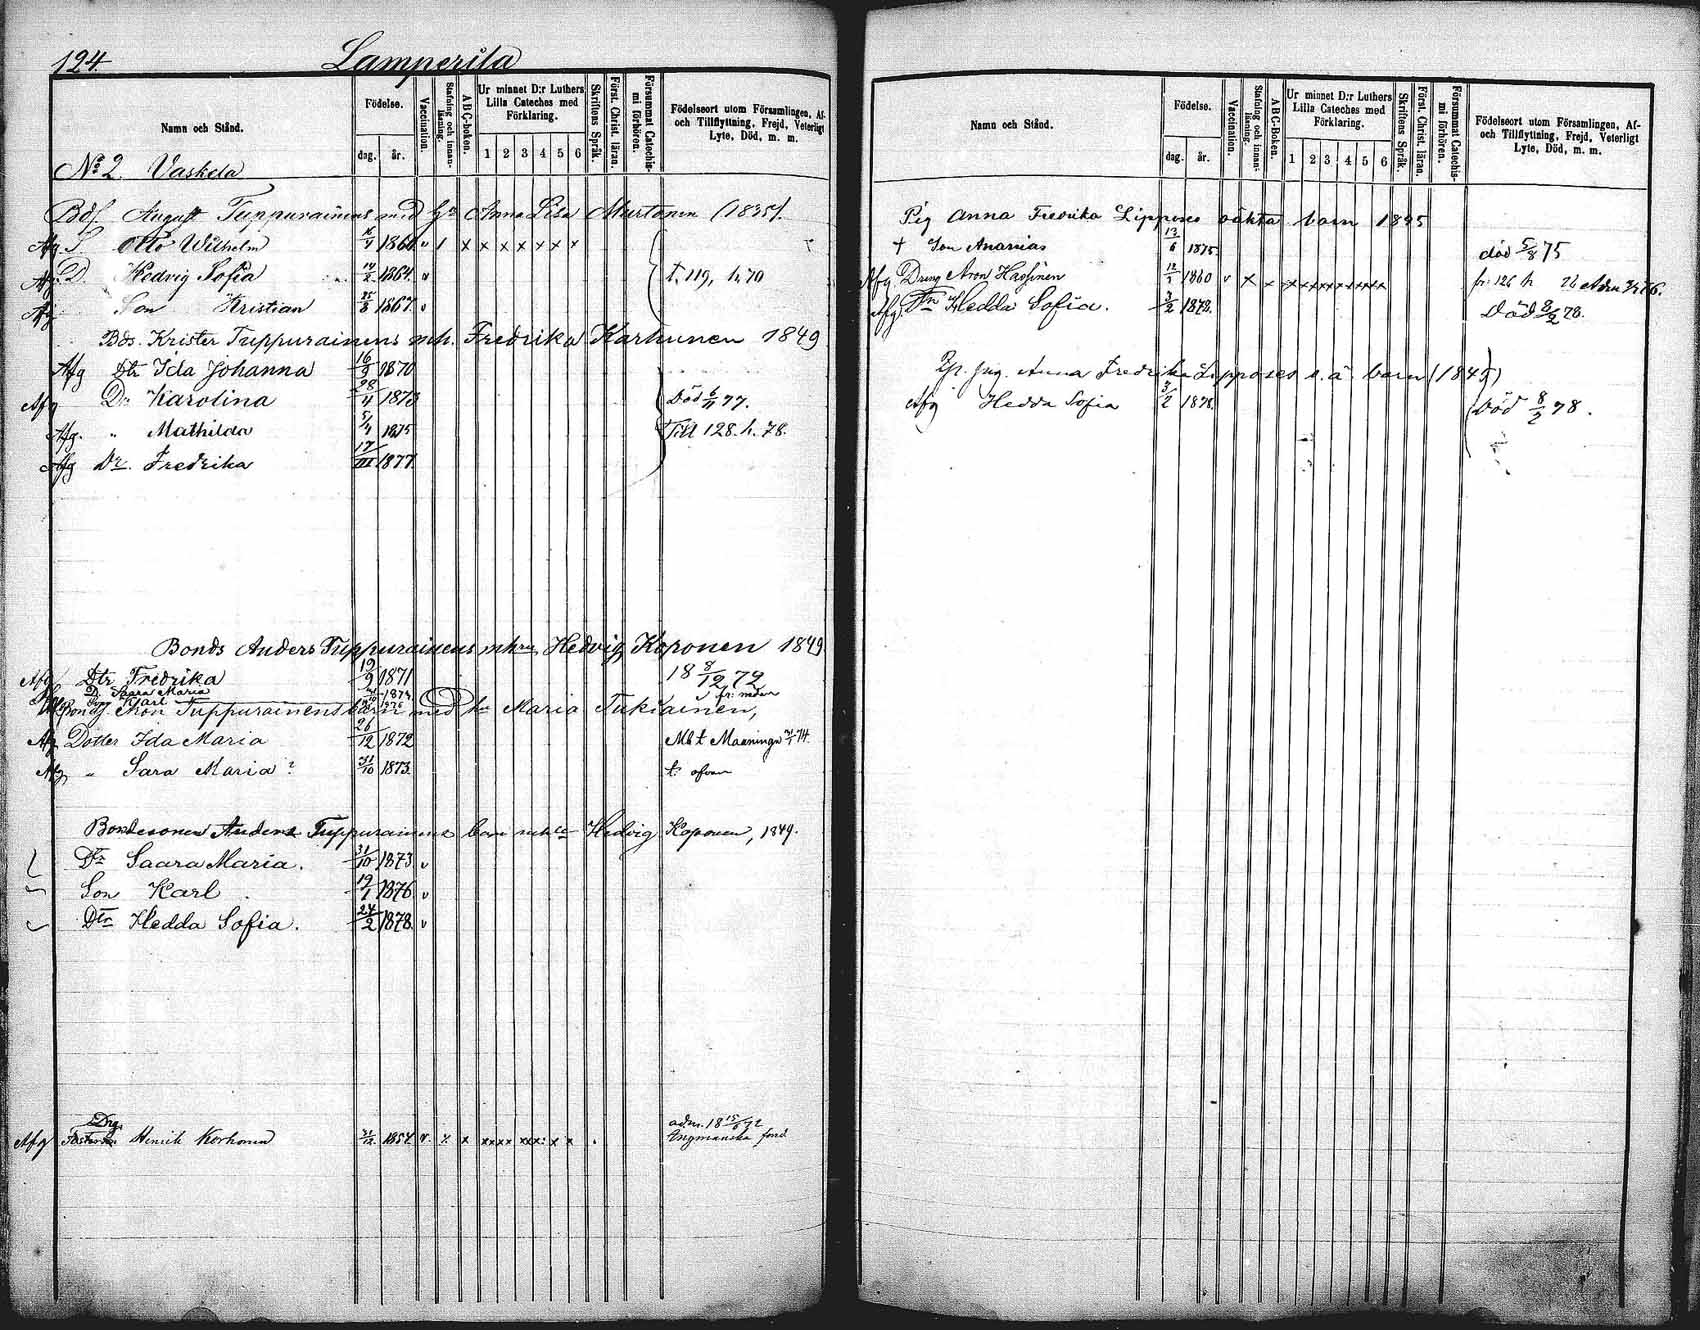 124.
Lamperila
Namn och Stånd.
Födelse.
dag.
år.
Vaccination.
Stafning och innanläsning.
ABC-boken.
Ur minnet D:r Luthers Lilla Cateches med Förklaring.
1 2 3 4 5 6
Skriftens Språk.
Först. Christ. läran.
Försummat Catechismi förhören.
Födelseort utom Församlingen, Af- och Tillflyttning, Frejd, Veterligt Lyte, Död, m. m.
No 2 Vaskela
Bds August Tuppurainens med h:u Anna Lisa Murtonen (1835).
Afg S. Otto Wilhelm 1860 v 1 x x x x x x x
Afg D. Hedvig Sofia 1864 v t. 119, h. 70
Afg Son Kristian 25/8 1867 v
Bds. Krister Tuppurainens m.h. Fredrika Karhunen 1849
Afg Dtr Ida Johanna 16/9 1870
Afg Dr Karolina 28/11 1873 Död 6/11 77.
Afg. " Mathilda 5/4 1875 Till 128. h. 78.
Afg Dr. Fredrika 17/III 1877
Bonds Anders Tuppurainens m hru Hedvig Koponen 1849
Afg Dtr Fredrika 19/9 1871 18 8/12 72
D. Saara Maria 1873 fr. nedan
Karl 1876
Bondes. Aron Tuppurainens barn med hu Maria Tukiainen,
Afg Dotter Ida Maria 26/12 1872 Mb t Maaninga 74
Afg " Sara Maria? 31/10 1873. t. ofvan
Bondesonen Anders Tuppurainens barn m h:u Hedvig Koponen, 1849.
Dr Saara Maria. 31/10 1873 v
Son Karl 19/1 1876 v
Dtr Hedda Sofia. 24/2 1878 v
Drg.
Afg Henrik Korhonen 1854 v. x x xxxx xxx: x x .
adm. 18 15/6 72
Engmanska fond
Namn och Stånd.
Födelse.
dag.
år.
Vaccination.
Stafning och innanläsning.
ABC-Boken.
Ur minnet D:r Luthers Lilla Cateches med Förklaring.
1 2 3 4 5 6
Skriftens Språk.
Först. Christ. läran.
Försummat Catechismi förhören.
Födelseort utom Församlingen, Af- och Tillflyttning, Frejd, Veterligt Lyte, Död, m. m.
Pig Anna Fredrika Lipposes oäkta barn 1845
† Son Ananias 13/6 1875 död 5/8 75
Afg. Dreng Aron Hassinen 1860 v x x xxxxxxxxx fr. 126 h 76
Afg. Dr Hedda Sofia. 3/2 1878. Död 8/2 78.
Anna Fredrika Lipposes o.ä. barn (1845)
Afg Hedda Sofia 3/2 1878. Död 8/2 78.